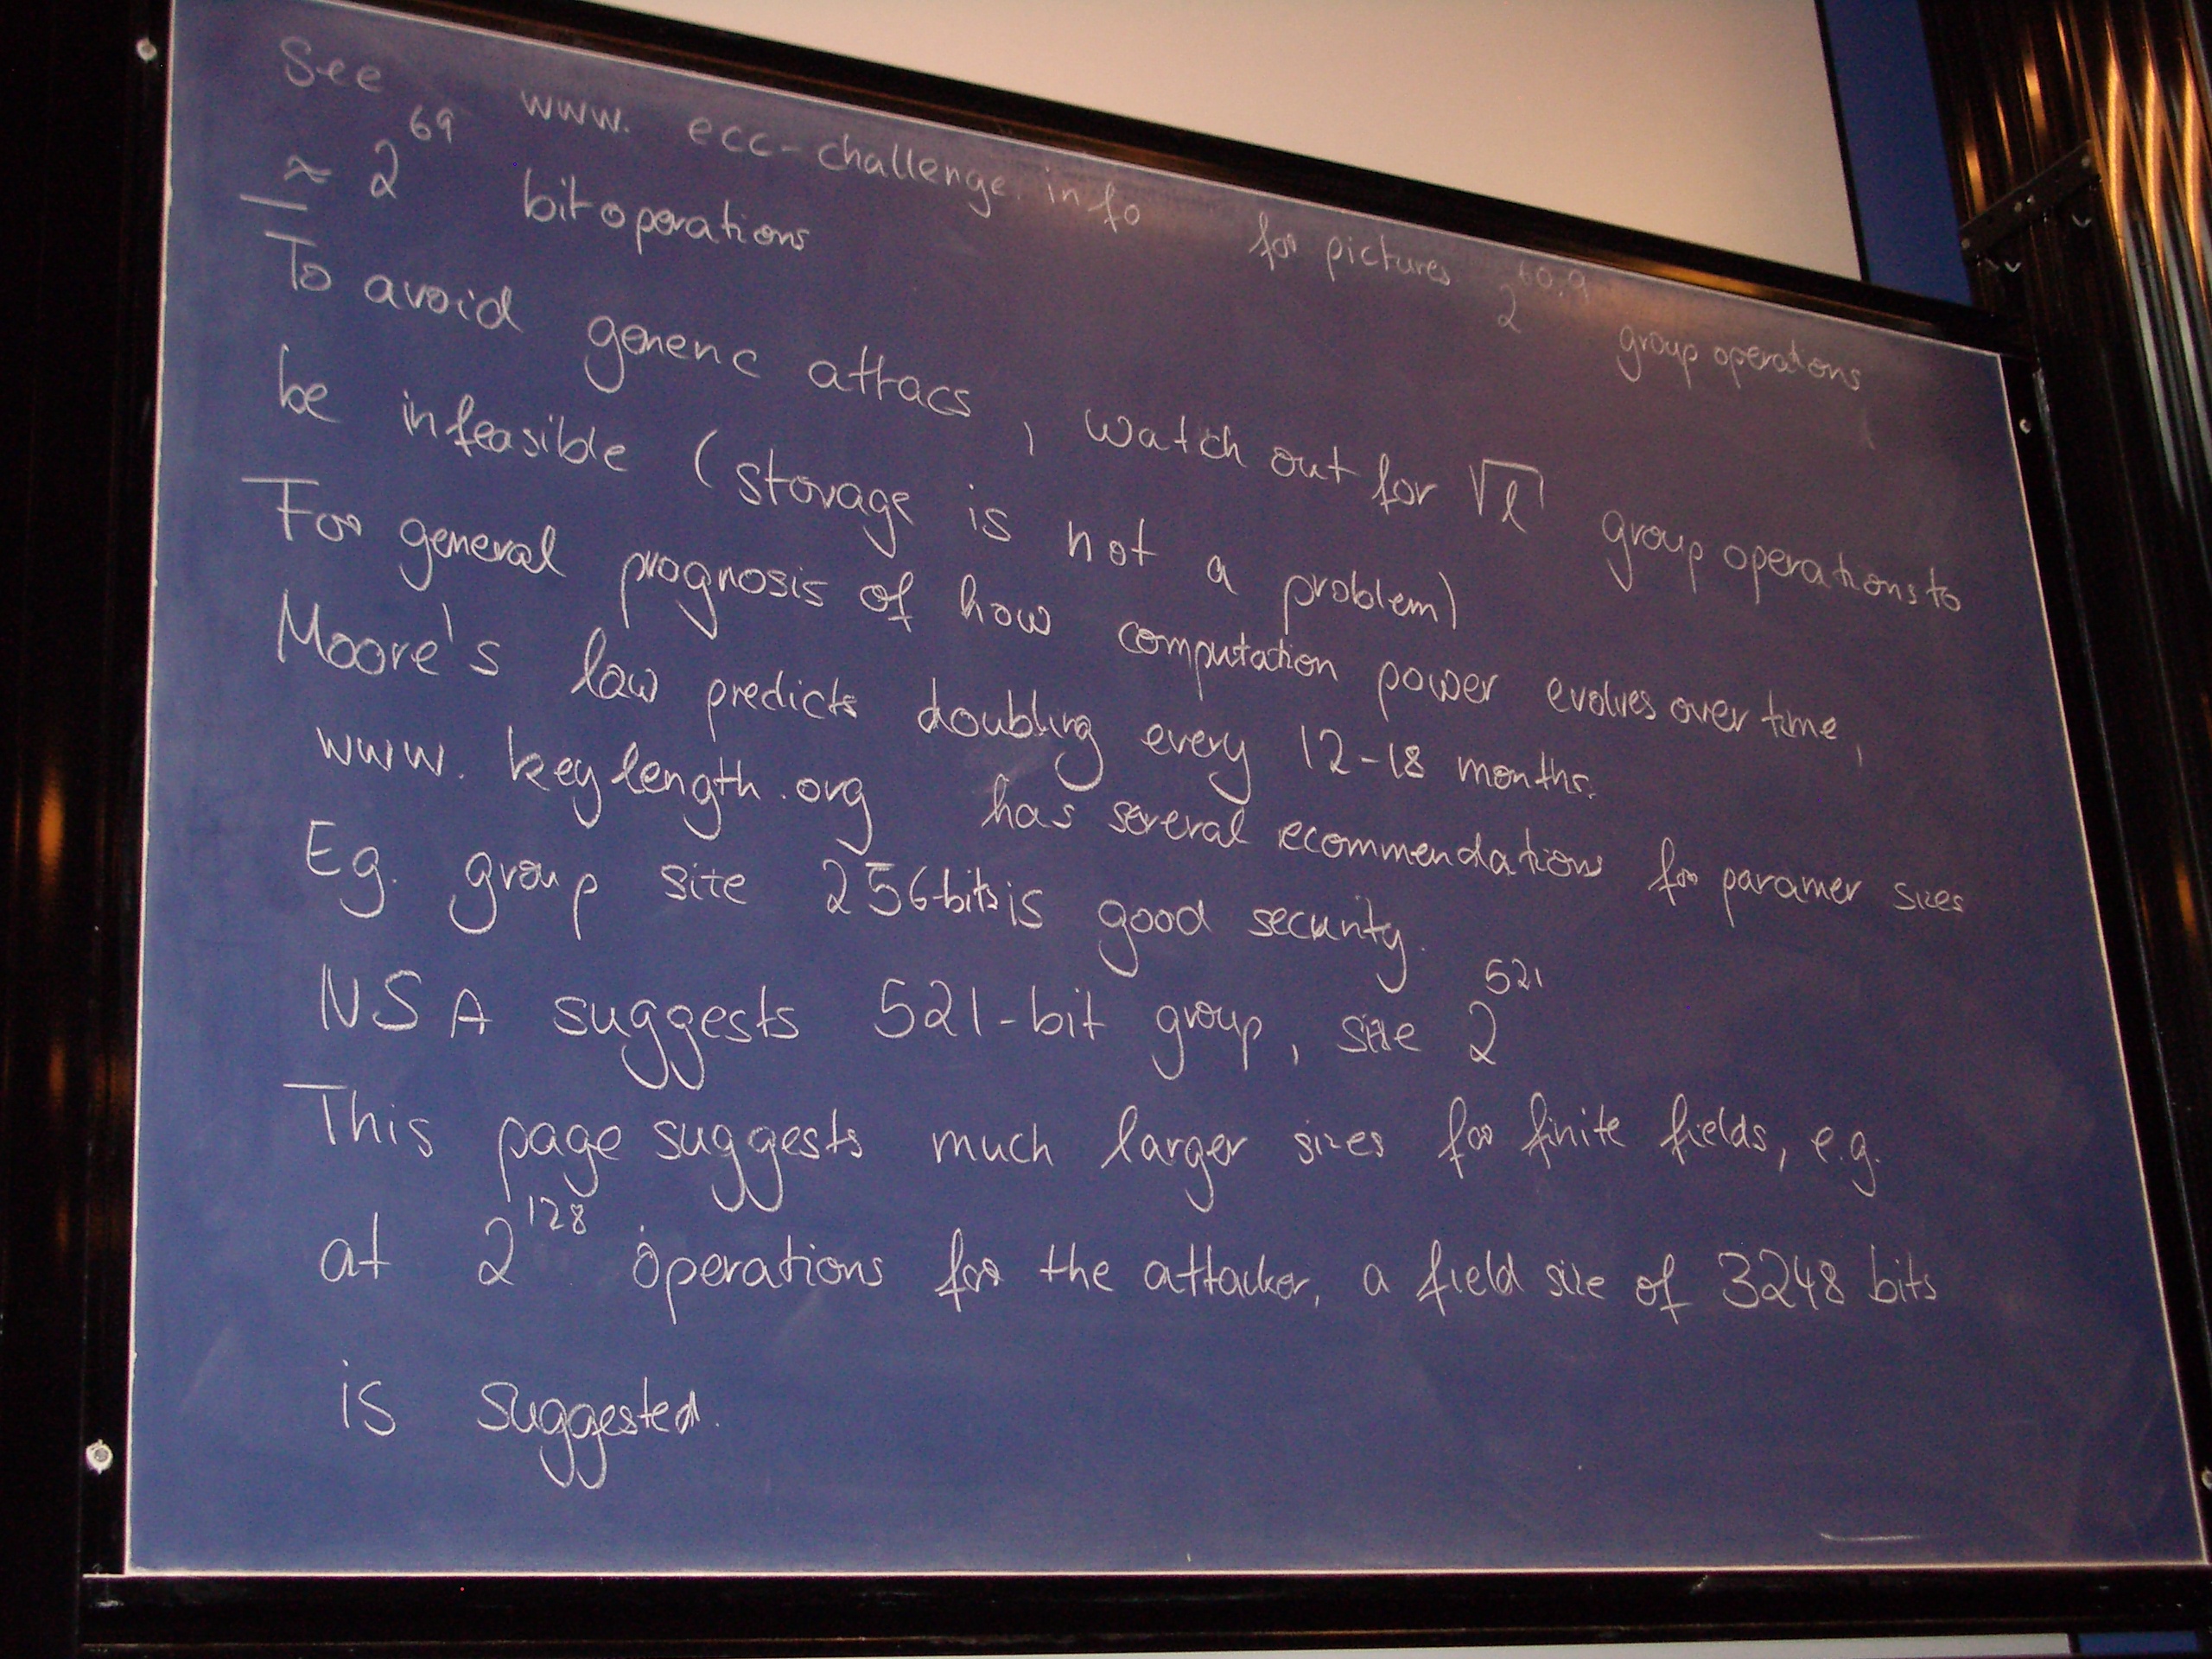 See www.ecc-challenge.info for pictures 2^60.9 group operations
≈ 2^69 bit operations
To avoid generic attacs, watch out for √l group operations to
be infeasible (storage is not a problem)
For general prognosis of how computation power evolves over time,
Moore's law predicts doubling every 12-18 months.
www.keylength.org has several recommendations for paramer sizes
Eg. group size 256-bits is good security.
NSA suggests 521-bit group, size 2^521
This page suggests much larger sizes for finite fields, e.g.
at 2^128 operations for the attacker, a field size of 3248 bits
is suggested.